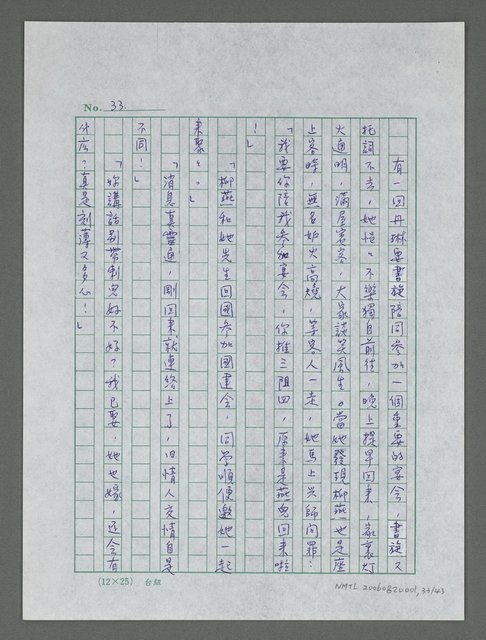 No. 33.
有一回丹琳要書旋陪同參加一個重要的宴會，書旋又
托詞不去，她悒々不樂獨自前往，晚上提早回來，家裏灯
火通明，滿屋賓客，大家談笑風生。當她發現柳燕也是座
上客時，無名妒火高燒，等客人一走，她馬上興師問罪：
「我要你陪我參加宴會，你推三阻四，原來是燕兒回來啦
！」
「柳燕和她先生回國參加國建會，同學順便邀她一起
來聚々。」
「消息真靈通，剛回來就連絡上了，旧情人交情自是
不同！」
「妳講話別帶刺兒好不好？我已娶，她也嫁，还会有
什么？真是刻薄又多心！」
(12×25) 台組
NMTL 20060820001, 33/43